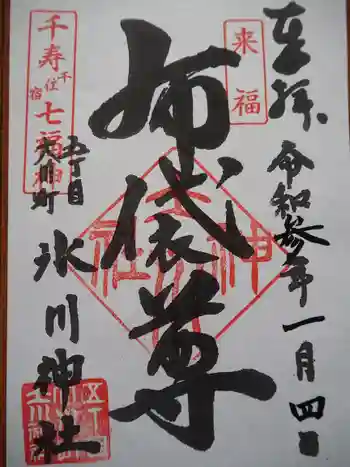 奉拝 令和参年一月四日
来福
布袋尊
千寿七福神
千住宿
五丁目
大川町
氷川神社